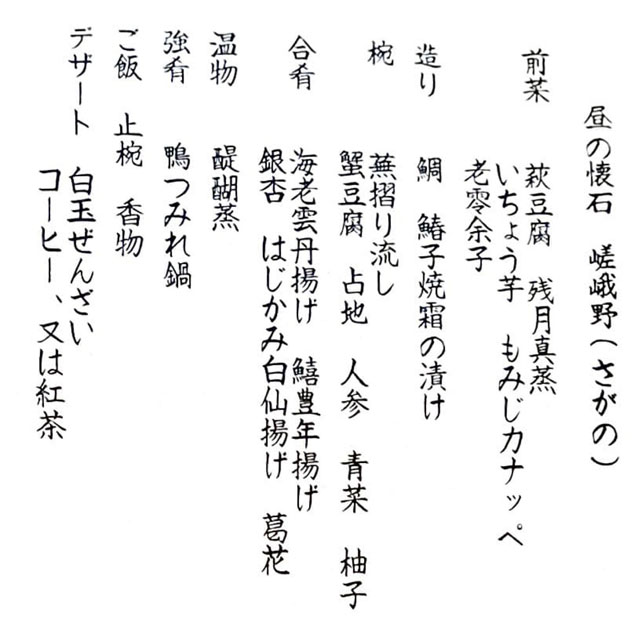 昼の懐石 嵯峨野(さがの)
前菜 萩豆腐 残月真蒸
いちょう芋 もみじカナッペ
老零余子
造り 鯛 鰆子焼霜の漬け
椀 蕪摺り流し
蟹豆腐 占地 人参 青菜 柚子
合肴 海老雲丹揚げ 鱚豊年揚げ
銀杏 はじかみ白仙揚げ 葛花
温物 醍醐蒸
強肴 鴨つみれ鍋
ご飯 止椀 香物
デザート 白玉ぜんざい
コーヒー、又は紅茶